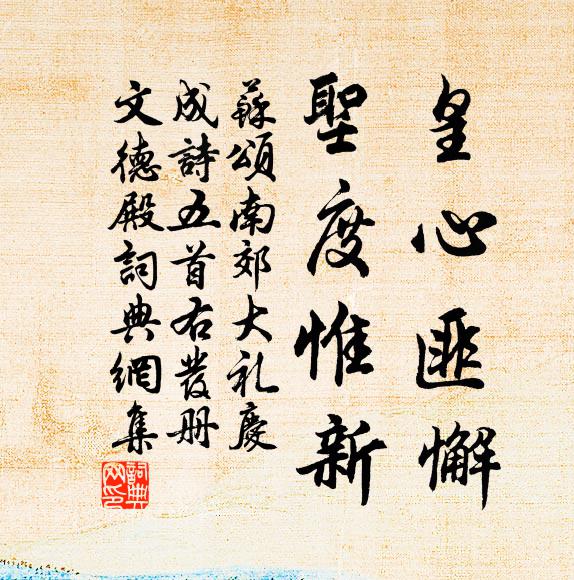 皇心匪懈
聖度惟新
蘇頌南郊大礼慶
成詩五首右發册
文德殿詞典網集
詞典网印